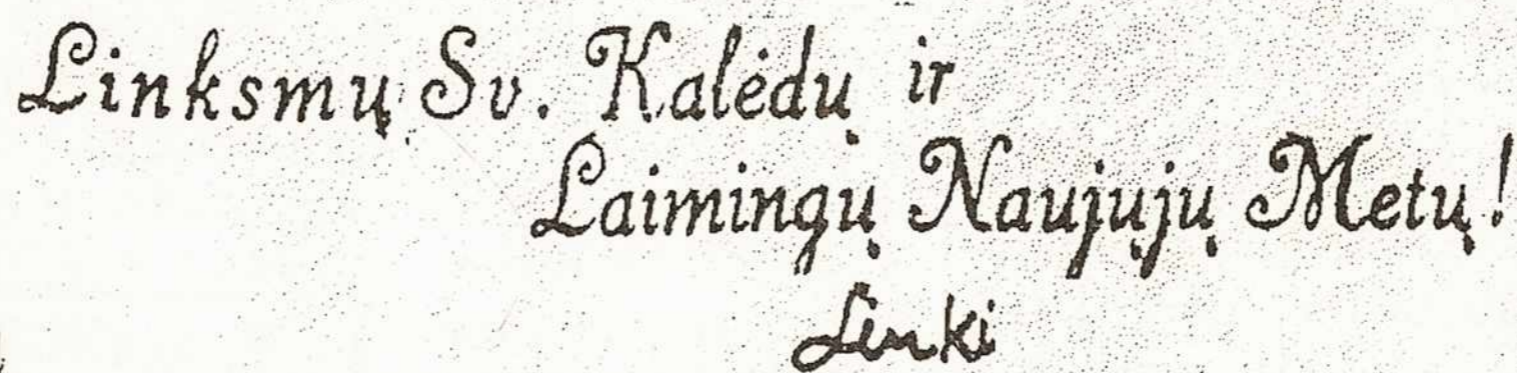 Linksmų Sv. Kalėdų ir
Laimingų Naujųjų Metų!
Linki